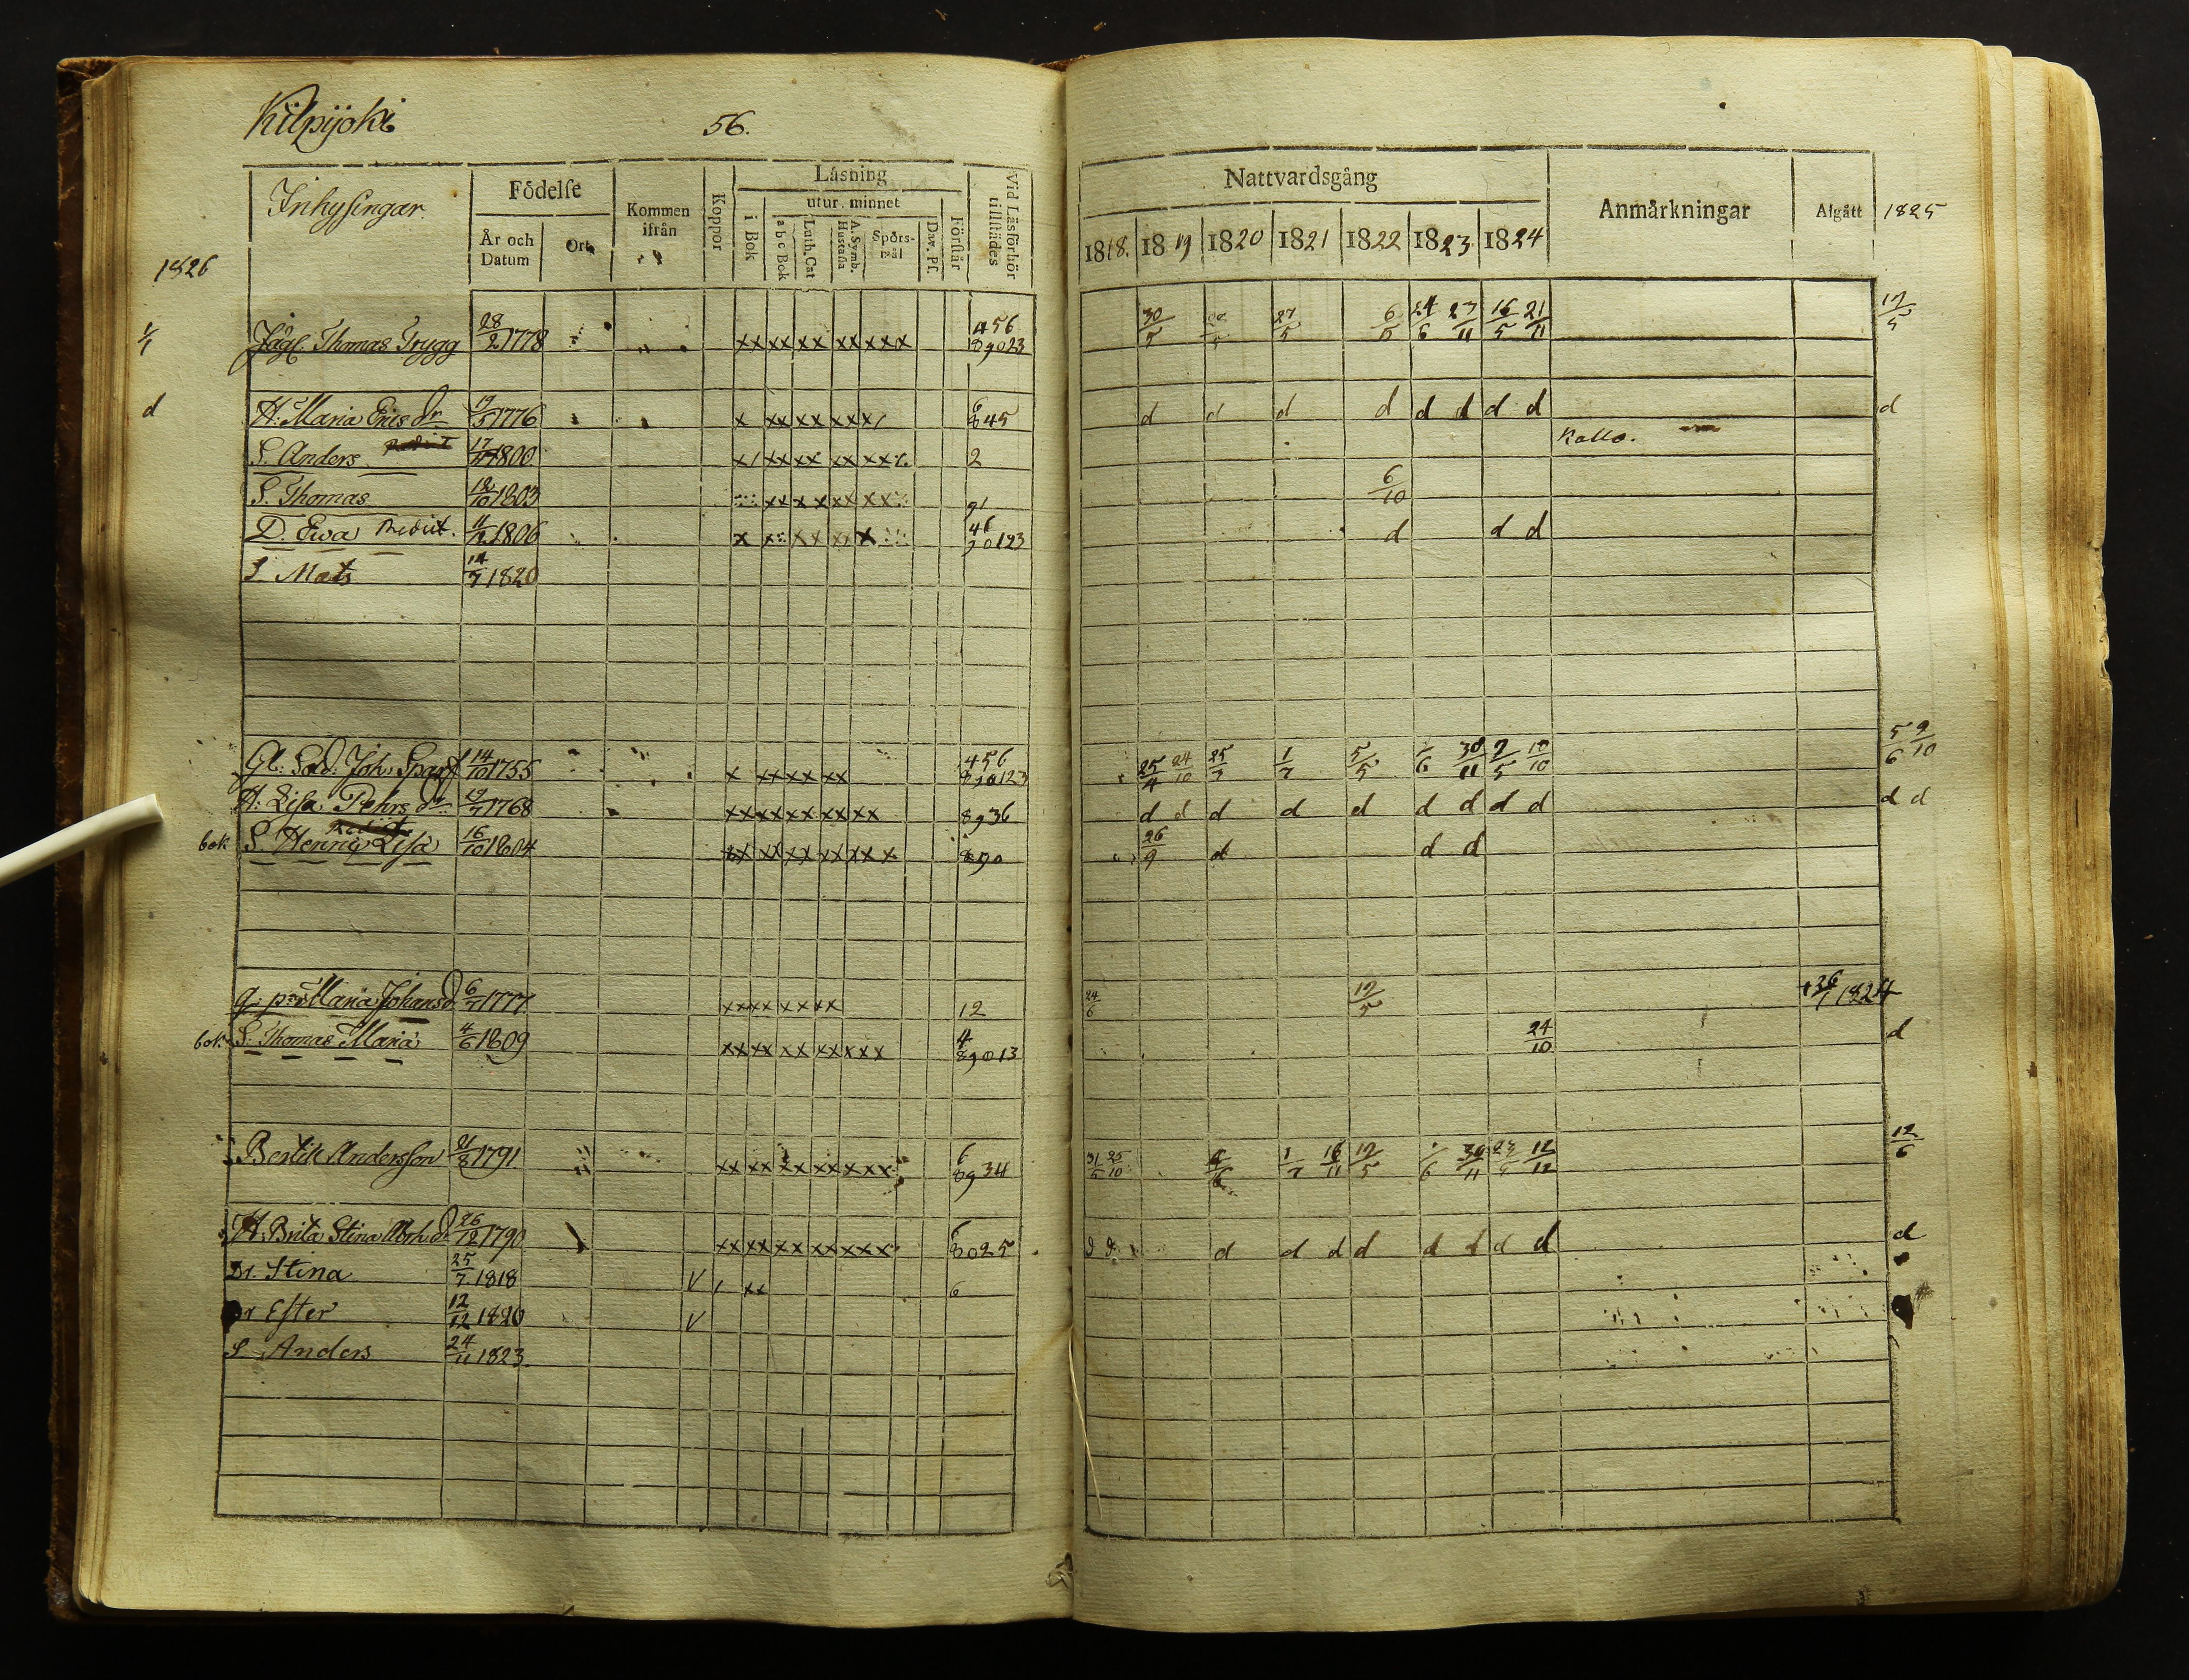 Kilpijoki
56.
Inhysingar.
Födelse
År och Datum
Ort
Kommen ifrån
Koppor
Läsning
i Bok
utur minnet
a b c Bok
Luth. Cat
A. Symb. Hustafla
Spörsmål
Dav. Ps.
Förstår
Vid Läsförhör tillstädes
Nattvardsgång
1818. 1819 1820 1821 1822 1823 1824
Anmärkningar
Afgått
1825
1826
Jägl. Thomas Trygg 28/2 1778 xx xx xx xx xx x 456 89023 30/5 27/5 24/6 27/11 16/5 21/11
d H: Maria Ericsdr 1776 x xx xx xx x/ 6 845 d d d d d d d d d
S. Anders 1800 x/ xx xx xx xx 2 Kallo.
S. Thomas 12/10 1803 91 6/10
D. Ewa Mediit. 11/12 1806 46 90123 d d d
S Mats 14/9 1820
Gl: Sold: Joh: Sparf 14/10 1755 x xx xx xx 456 890123 25/4 24/10 25/7 1/7 5/5 30/11 2/5 10/10 5/6 9/10
H: Lisa Pehrsdr 1768 xx xx xx xx xx 8936 d d d d d d d d d d d
bok S. Henric Lisa 16/10 1804 xx xx xx xx xx x 890 26/9 d d d
Maria Johansd. 6/7 1777 xx xx xx xx 12 24/6 12/5 + 26/1 1824
bok. S: Thomas Maria 4/6 1809 xx xx xx xx xx x 4 89013 24/10 d
Bertill Andersson 21/8 1791 xx xx xx xx xx x 6 8934 31/5 25/10 1/7 16/11 12/5 30/11 12/12 12/6
H: Brita Stina Abrh.dr 26/12 1790 xx xx xx xx xx x 6 8025 d d d d d d d d d d d
Dr. Stina 25/7 1818 V / xx 6
Dr Ester 12/12 1820 V
S Anders 24/11 1823